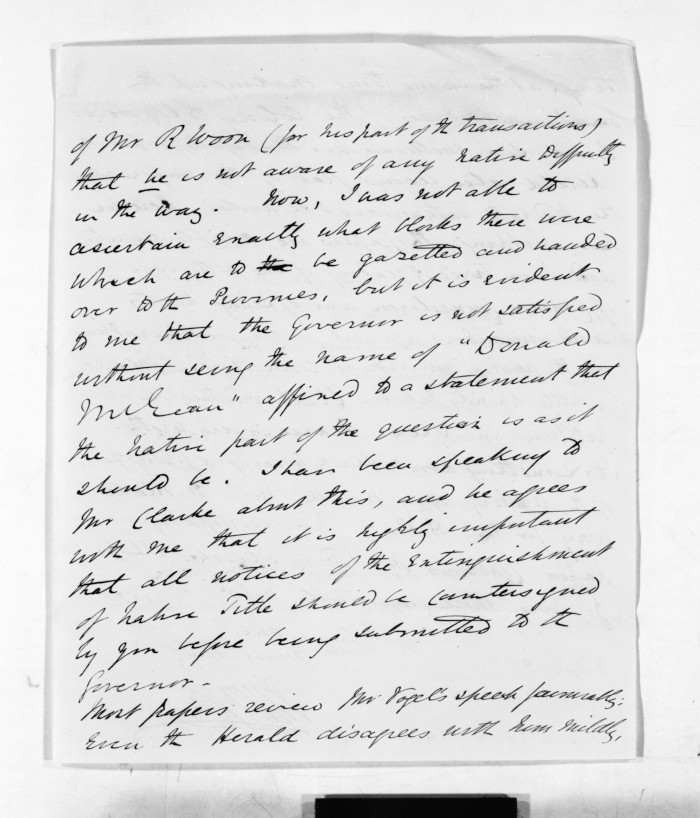 of Mr R Woon (for his part of the transactions)
that he is not aware of any native difficulty
in the way. Now, I was not able to
ascertain exactly what blocks there were
which are to the be gazetted and handed
over to th Provinces, but it is evident
to me that the Governor is not satisfied
without seeing the name of "Donald
McLean" affixed to a statement that
the native part of the question is as it
should be. I have been speaking to
Mr Clarke about this, and he agrees
with me that it is highly important
that all notices of the extinguishment
of Native Title should be countersigned
by you before being submitted to th
Governor -
Most papers review Mr Vogel's speech favourably:
Even th Herald disagrees with him mildly,